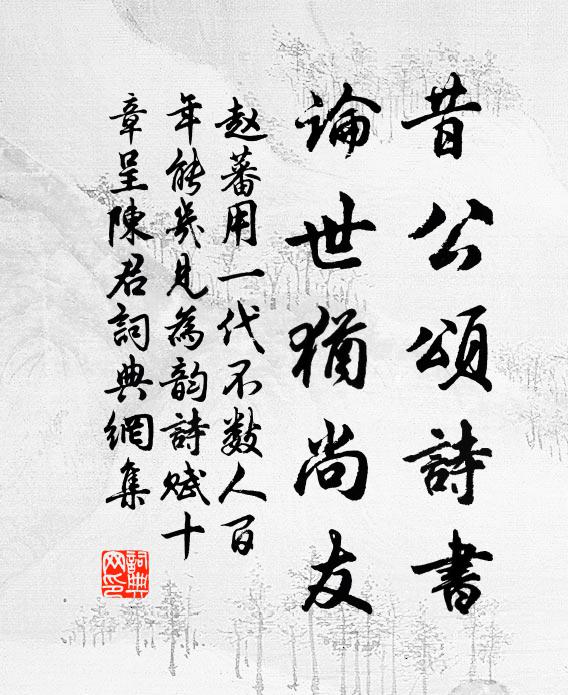 昔公頌詩書
論世猶尚友
赵蕃用一代不数人百
年能幾見為韵詩赋十
章呈陳君詞典網集
詞典网印